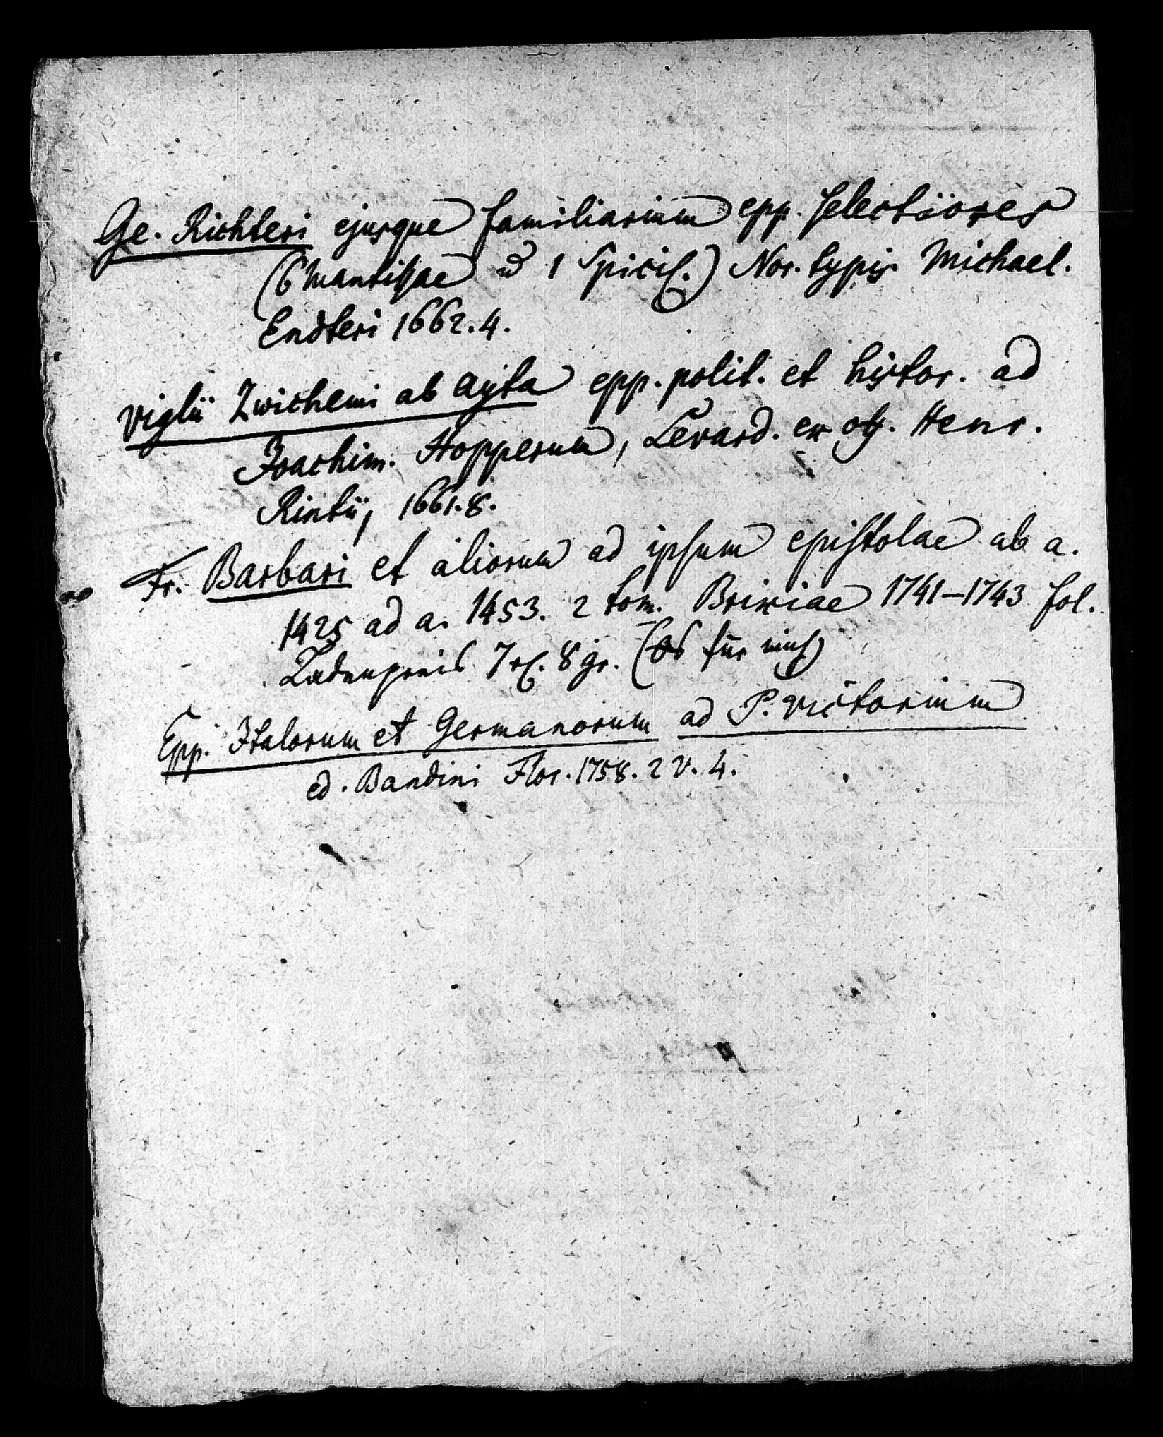 Ge. Richteri ejusque familiarium epp. selectiores
(6 Mantissae u 1 Spicil.) Nor. typis Michael.
Endteri 1662. 4.
Viglii Zwichemi ab Ayta epp. polit. et histor. ad
Joachim. Hopperum, Levard. ex off. Henr.
Rintii, 1661. 8.
Fr. Barbari et aliorum ad ipsum epistolae ab a.
1425 ad a. 1453. 2 tom. Brixiae 1741–1743 fol.
Ladenpreis 7 rl. 8 gr. ( für mich)
Epp. Italorum et Germanorum ad P. Victorium
ed. Bandini Flor. 1758. 2 v. 4.